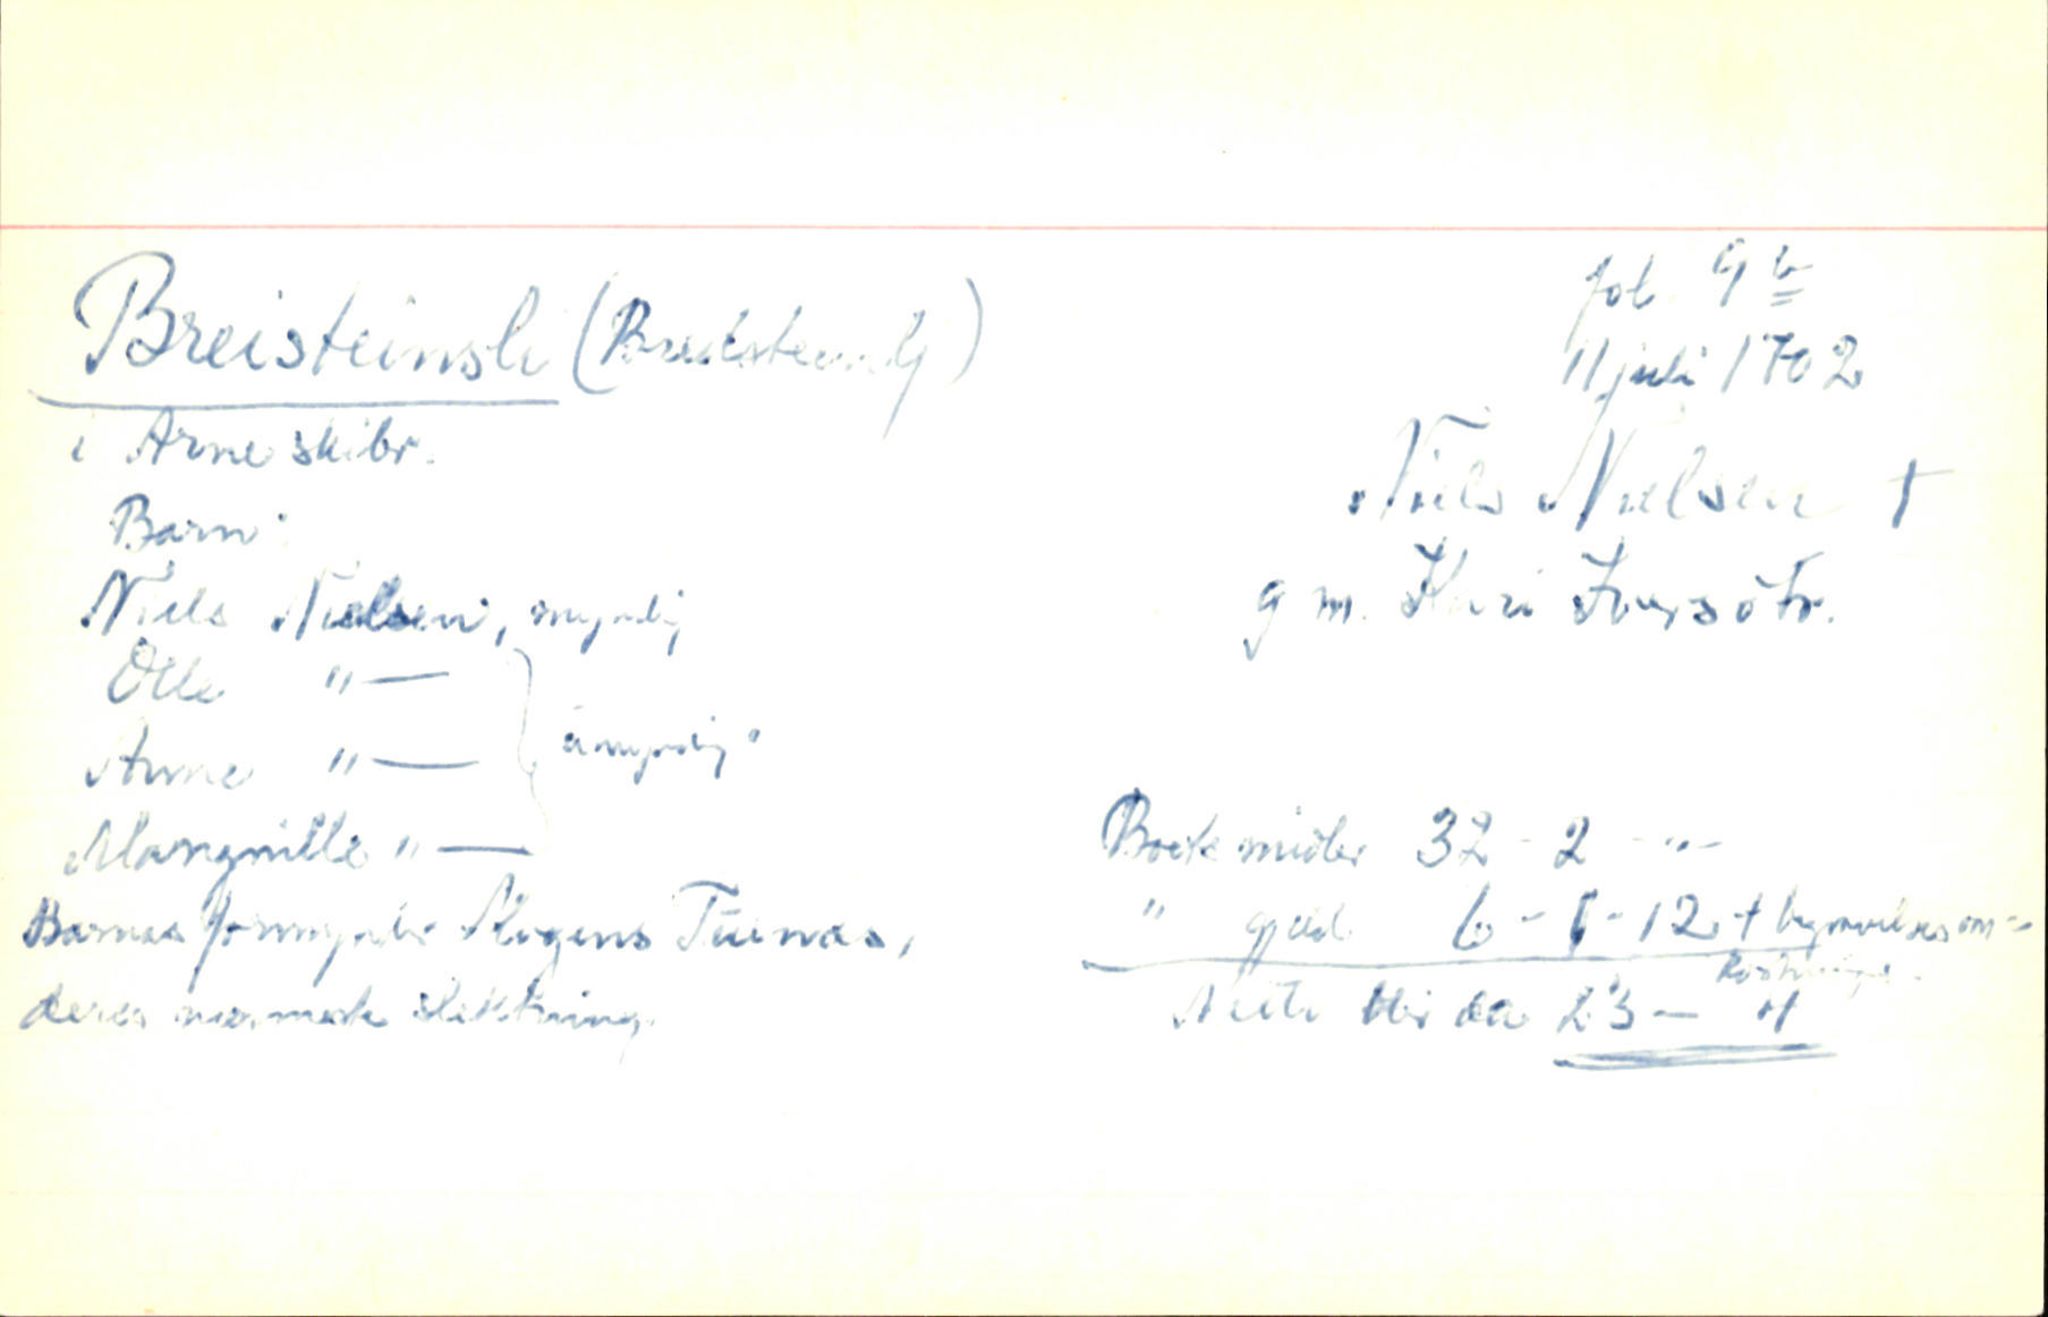 Breisteinsli (Bredsteenslj)
i Arne skibr.
Barn:
Niels Nielsen, myndig
Olle " —
Arne " —
Mangnille " —
umyndig
Barnas formynder Mogens Tuenæs,
deres nærmeste slektning.
fol. 9 b
11 juli 1702
Niels Nielsen †
g m. Kari Iversdtr.
Boets midler 32 - 2 - " -
" gjeld 6 - - 12 + begravelsesom-
kostninger.
Netto blir da 23 —